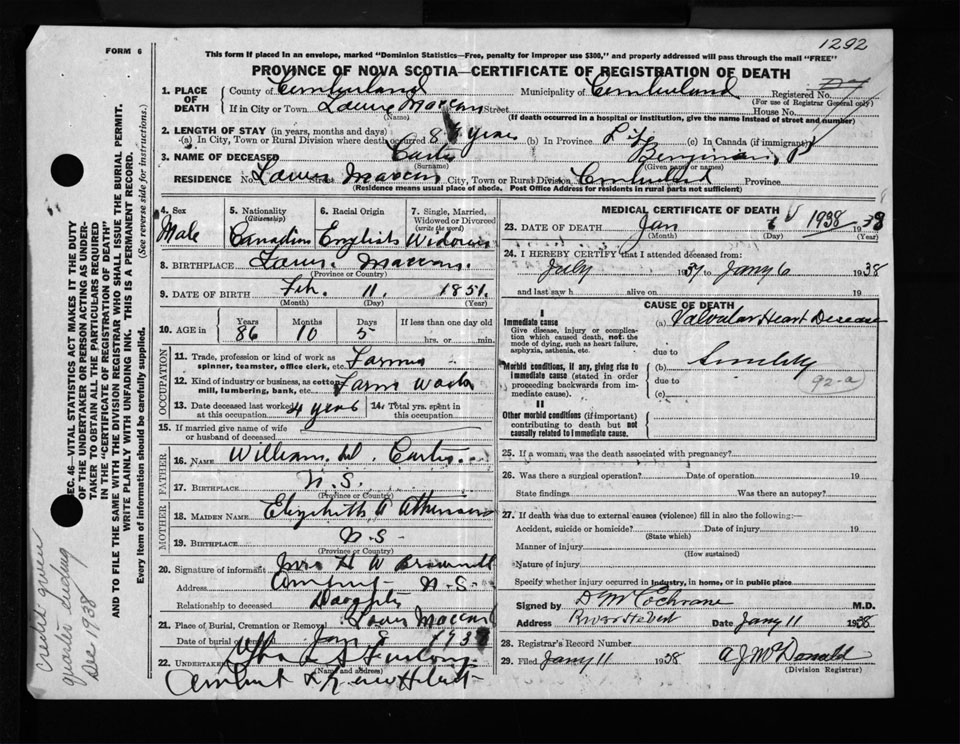 1292
FORM 6
This form if placed in an envelope, marked "Dominion Statistics—Free, penalty for improper use $300," and properly addressed will pass through the mail "FREE"
PROVINCE OF NOVA SCOTIA—CERTIFICATE OF REGISTRATION OF DEATH
1. PLACE OF DEATH County of Cumberland Municipality of Cumberland Registered No.
(For use of Registrar General only)
If in City or Town Lower Maccan Street House No.
(Name) (If death occurred in a hospital or institution, give the name instead of street and number)
2. LENGTH OF STAY (in years, months and days)
(a) In City, Town or Rural Division where death occurred 86 years (b) In Province Life (c) In Canada (if immigrant)
3. NAME OF DECEASED Carter Benjiman
(Surname) (Given name or names)
RESIDENCE No. Lower Street Maccan City, Town or Rural Division Cumberland Province
(Residence means usual place of abode. Post Office Address for residents in rural parts not sufficient)
4. Sex Male
5. Nationality (Citizenship) Canadian
6. Racial Origin English
7. Single, Married, Widowed or Divorced (write the word) Widower
8. BIRTHPLACE Lower Maccan
(Province or Country)
9. DATE OF BIRTH Feb. 11, 1851
(Month) (Day) (Year)
10. AGE in Years 86 Months 10 Days 5 If less than one day old hrs. or min.
OCCUPATION
11. Trade, profession or kind of work as spinner, teamster, office clerk, etc. Farmer
12. Kind of industry or business, as cotton mill, lumbering, bank, etc. Farm Work
13. Date deceased last worked at this occupation 4 years
14. Total yrs. spent in this occupation
15. If married give name of wife or husband of deceased
FATHER
16. NAME William Carter
17. BIRTHPLACE N.S.
(Province or Country)
MOTHER
18. MAIDEN NAME Elizabeth A Atkinson
19. BIRTHPLACE N.S.
(Province or Country)
20. Signature of informant Mrs H W Brownell
Address Amherst N.S.
Relationship to deceased Daughter
21. Place of Burial, Cremation or Removal Lower Maccan
Date of burial Jan 8 1938
22. UNDERTAKER
(Name and address)
Amherst
MEDICAL CERTIFICATE OF DEATH
23. DATE OF DEATH Jan 6 1938
(Month) (Day) (Year)
24. I HEREBY CERTIFY that I attended deceased from:
July 1937 to Jany 6 1938
and last saw h alive on 19
CAUSE OF DEATH
I
Immediate cause
Give disease, injury or complication which caused death, not the mode of dying, such as heart failure, asphyxia, asthenia, etc.
(a) Valvular Heart Disease
due to
Morbid conditions, if any, giving rise to immediate cause (stated in order proceeding backwards from immediate cause).
(b) Senility
92-a
due to
(c)
II
Other morbid conditions (if important) contributing to death but not causally related to immediate cause.
25. If a woman, was the death associated with pregnancy?
26. Was there a surgical operation? Date of operation 19
State findings Was there an autopsy?
27. If death was due to external causes (violence) fill in also the following:—
Accident, suicide or homicide? Date of injury 19
(State which)
Manner of injury
(How sustained)
Nature of injury
Specify whether injury occurred in industry, in home, or in public place
Signed by D M Cochrane M.D.
Address River Hebert Date Jany 11 1938
28. Registrar's Record Number
29. Filed Jany 11 1938 A J McDonald
(Division Registrar)
SEC. 46—VITAL STATISTICS ACT MAKES IT THE DUTY
OF THE UNDERTAKER OR PERSON ACTING AS UNDER-
TAKER TO OBTAIN ALL THE PARTICULARS REQUIRED
IN THE "CERTIFICATE OF REGISTRATION OF DEATH"
AND TO FILE THE SAME WITH THE DIVISION REGISTRAR WHO SHALL ISSUE THE BURIAL PERMIT.
WRITE PLAINLY WITH UNFADING INK. THIS IS A PERMANENT RECORD.
Every item of information should be carefully supplied. (See reverse side for instructions.)
Credit given
quarter ending
Dec 1938